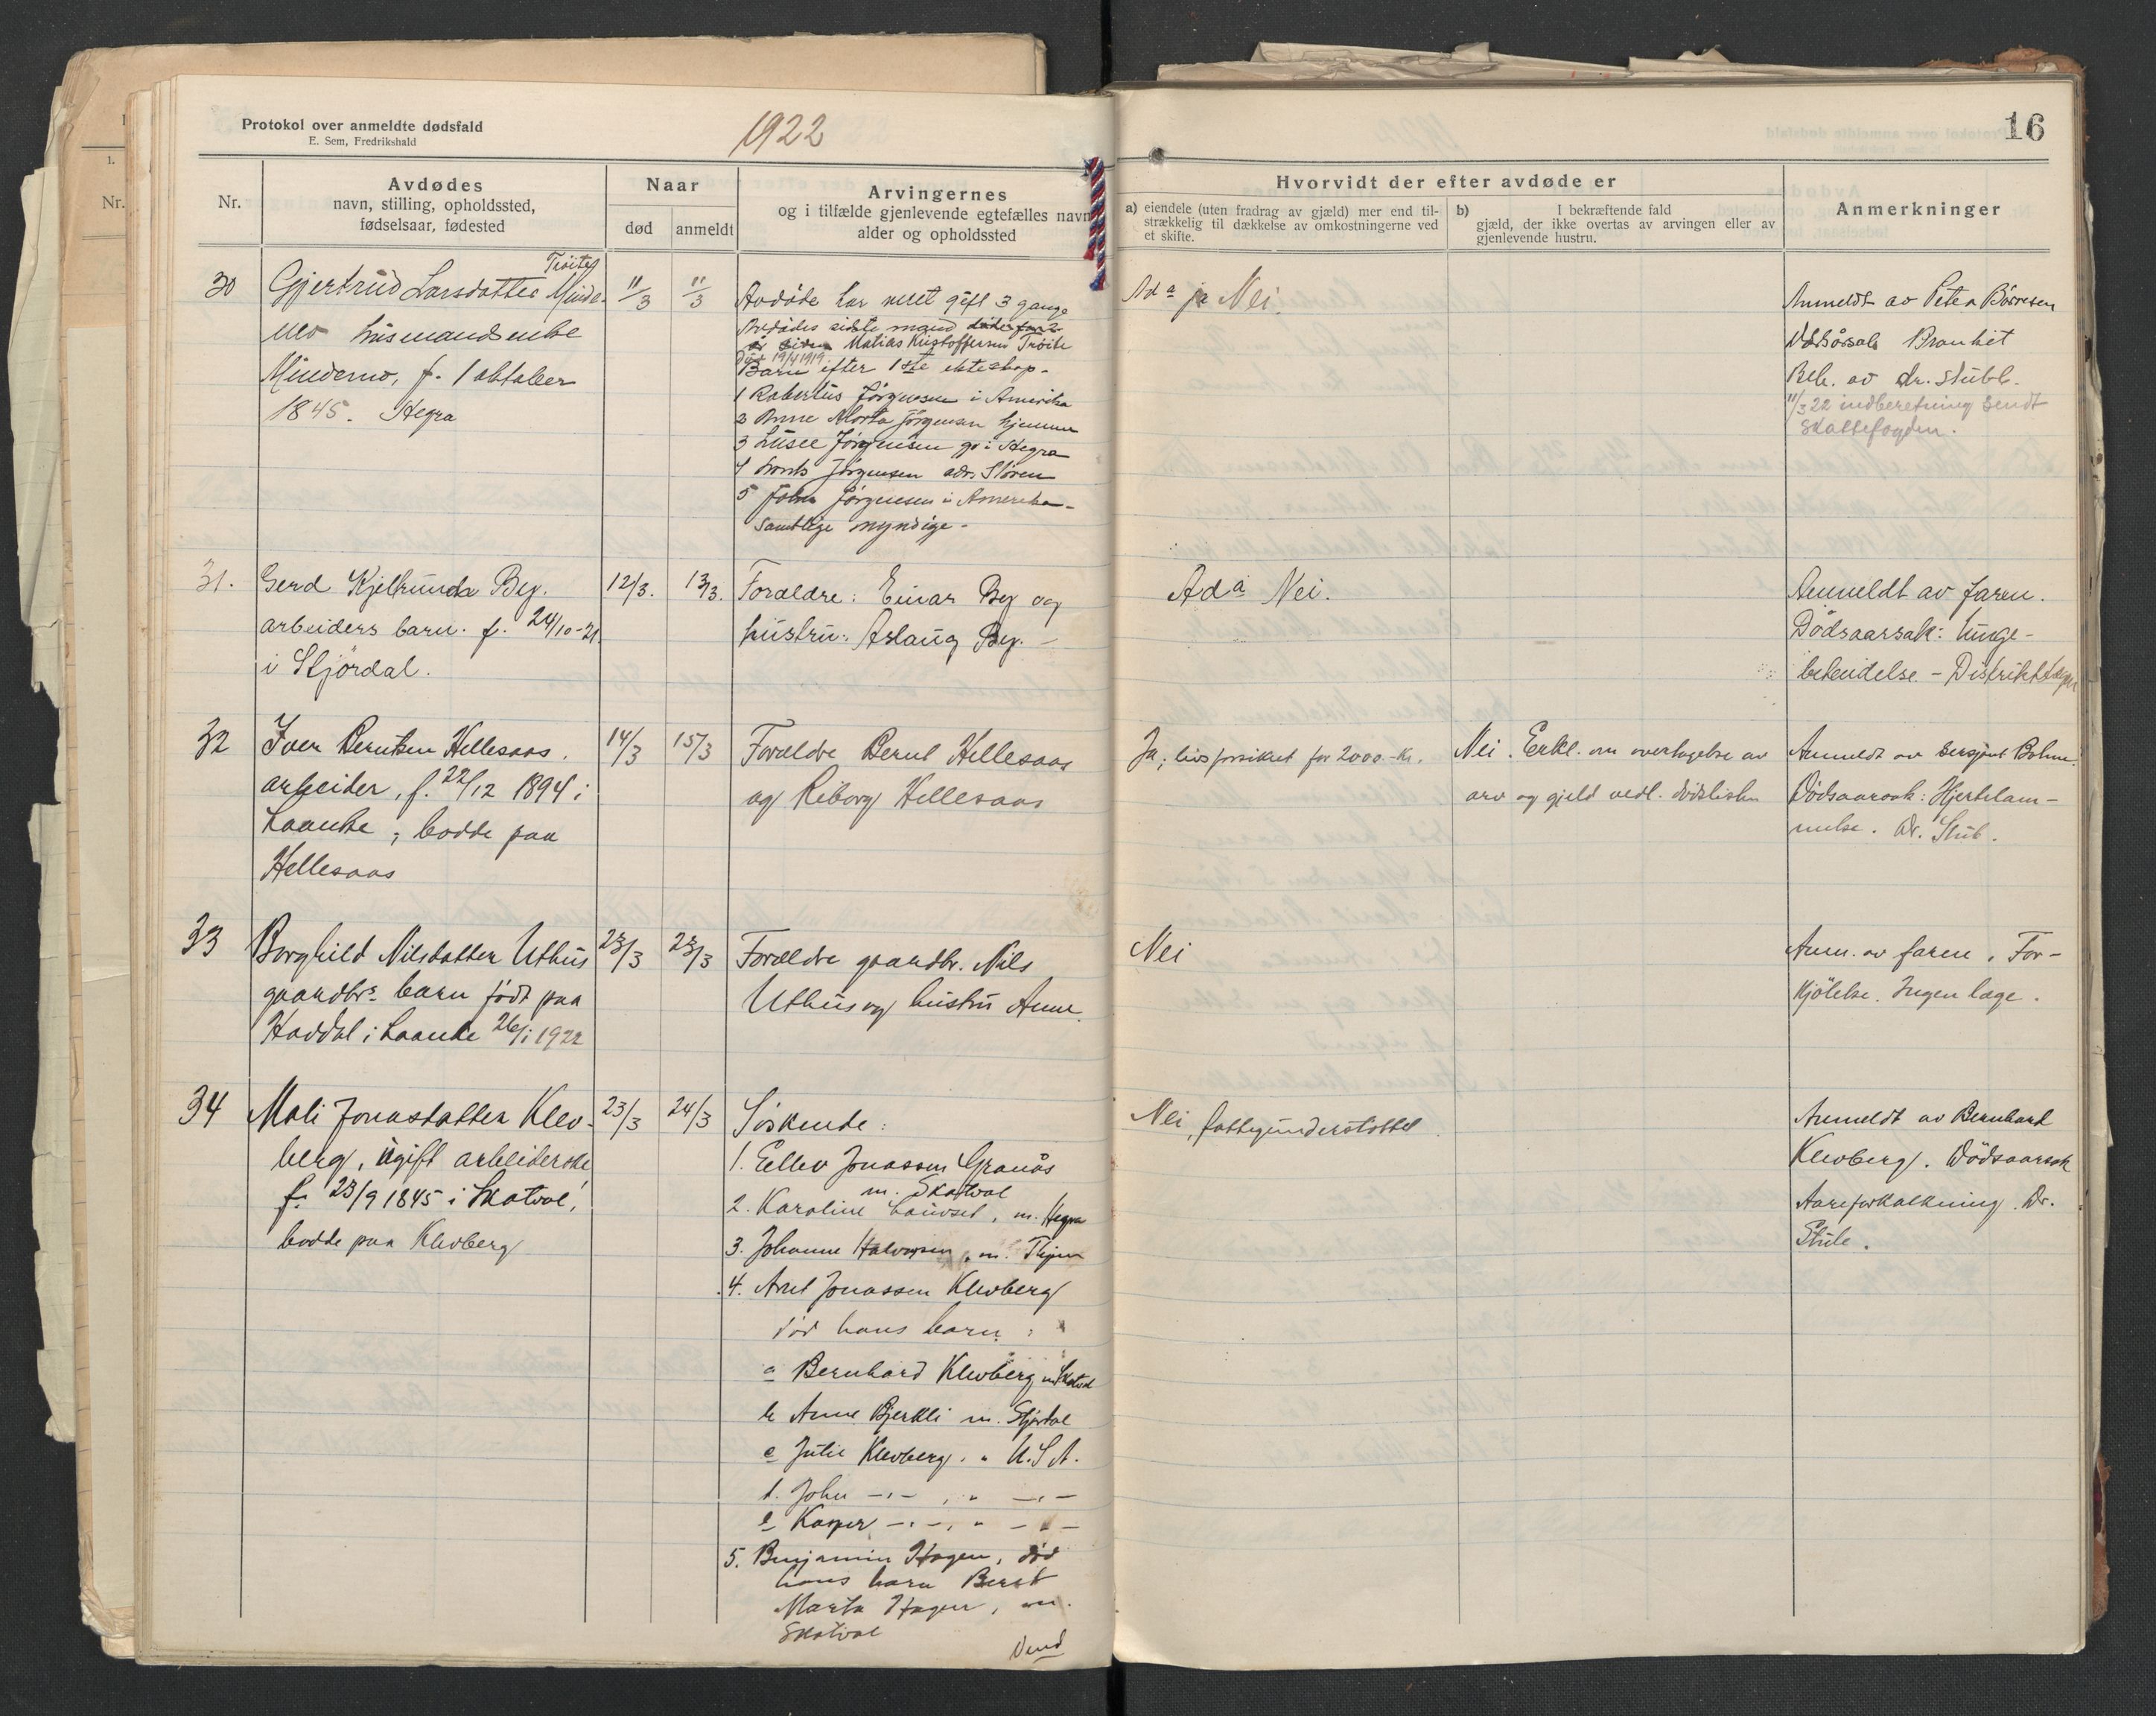 Protokol over anmeldte dødsfald
E. Sem, Fredrikshald
1922
16
Nr.
Avdødes
navn, stilling, opholdssted,
fødselsaar, fødested
Naar
død
anmeldt
Arvingernes
og i tilfælde gjenlevende egtefælles navn
alder og opholdssted
Hvorvidt der efter avdøde er
a) eiendele (uten fradrag av gjæld) mer end til-
strækkelig til dækkelse av omkostningerne ved
et skifte.
b) I bekræftende fald
gjæld, der ikke overtas av arvingen eller av
gjenlevende hustru.
Anmerkninger
30
Trøite
Gjertrud Larsdatter Minde-
mo husmandsenke
Mindemo, f. 1 oktober
1845. Hegra
11/3
11/3
Avdøde har været gift 3 gange
Avdødes sidste mand døde for 2
år siden Matias Kristoffersen Trøite
Død 19/4 1919
Barn efter 1ste ekteskap.
1 Robertus Jørgensen i Amerika
2 Anne Marta Jørgensen hjemme
3 Jørgensen i Hegra
4 Jørgensen adr. Støren
5 John Jørgensen i Amerika
samtlige myndige.
Ad a ja Nei.
Anmeldt av Peter Børresen
Dødsårsak Bronkit
Beh. av dr. Stub.
11/3 22 indberetning sendt
Skattefogden.
31.
Gerd Kjellrunda Beg.
arbeiders barn. f. 24/10-21
i Stjørdal.
12/3.
13/3.
Forældre: Einar Beg og
hustru: Aslaug Beg.
Ad a Nei.
Anmeldt av faren.
Dødsaarsak: lunge-
betændelse - Distriktslægen
32
Iver Berntsen Hellesaas.
arbeider, f. 22/12 1894 i
Laanke, bodde paa
Hellesaas
14/3
15/3
Forældre Bernt Hellesaas
og Riborg Hellesaas
Ja; livsforsikret for 2000.- kr.
Nei. Erkl. om overtagelse av
arv og gjeld vedl. dødslisten
Anmeldt av sersjant Bohm.
Dødsaarsak: Hjertelam-
melse. Dr. Stub.
33
Borghild Nilsdatter Uthus
gaardbrs barn født paa
Haddal i Laanke 26/1 1922
23/3
23/3
Forældre gaardbr. Nils
Uthus og hustru Anne.
Nei
Anm. av faren. For-
kjølelse. Ingen læge.
34
Mali Jonasdatter Klev-
berg, ugift arbeiderske
f. 23/9 1845 i Skatval,
bodde paa Klevberg
23/3
24/3
Søskende:
1. Ellev Jonassen Granås
m. Skatval
2. Karoline Lauvset, m. Hegra
3. Johanne Halvorsen, m. Thjem
4. Axel Jonassen Klevberg
død hans barn:
a Bernhard Klevberg m. Skatval
b Anne Bjerkli m. Stjørdal
c Julie Klevberg, " U.S.A.
d. John -"- , " -"-
e Kasper -"-, " -"-
5. Benjamin Hagen, død
hans barn Berit
Marta Hagen, m.
Skatval
Vend
Nei, fattigunderstøttet.
Anmeldt av Bernhard
Klevberg. Dødsaarsak
Aareforkalkning. Dr.
Stub.